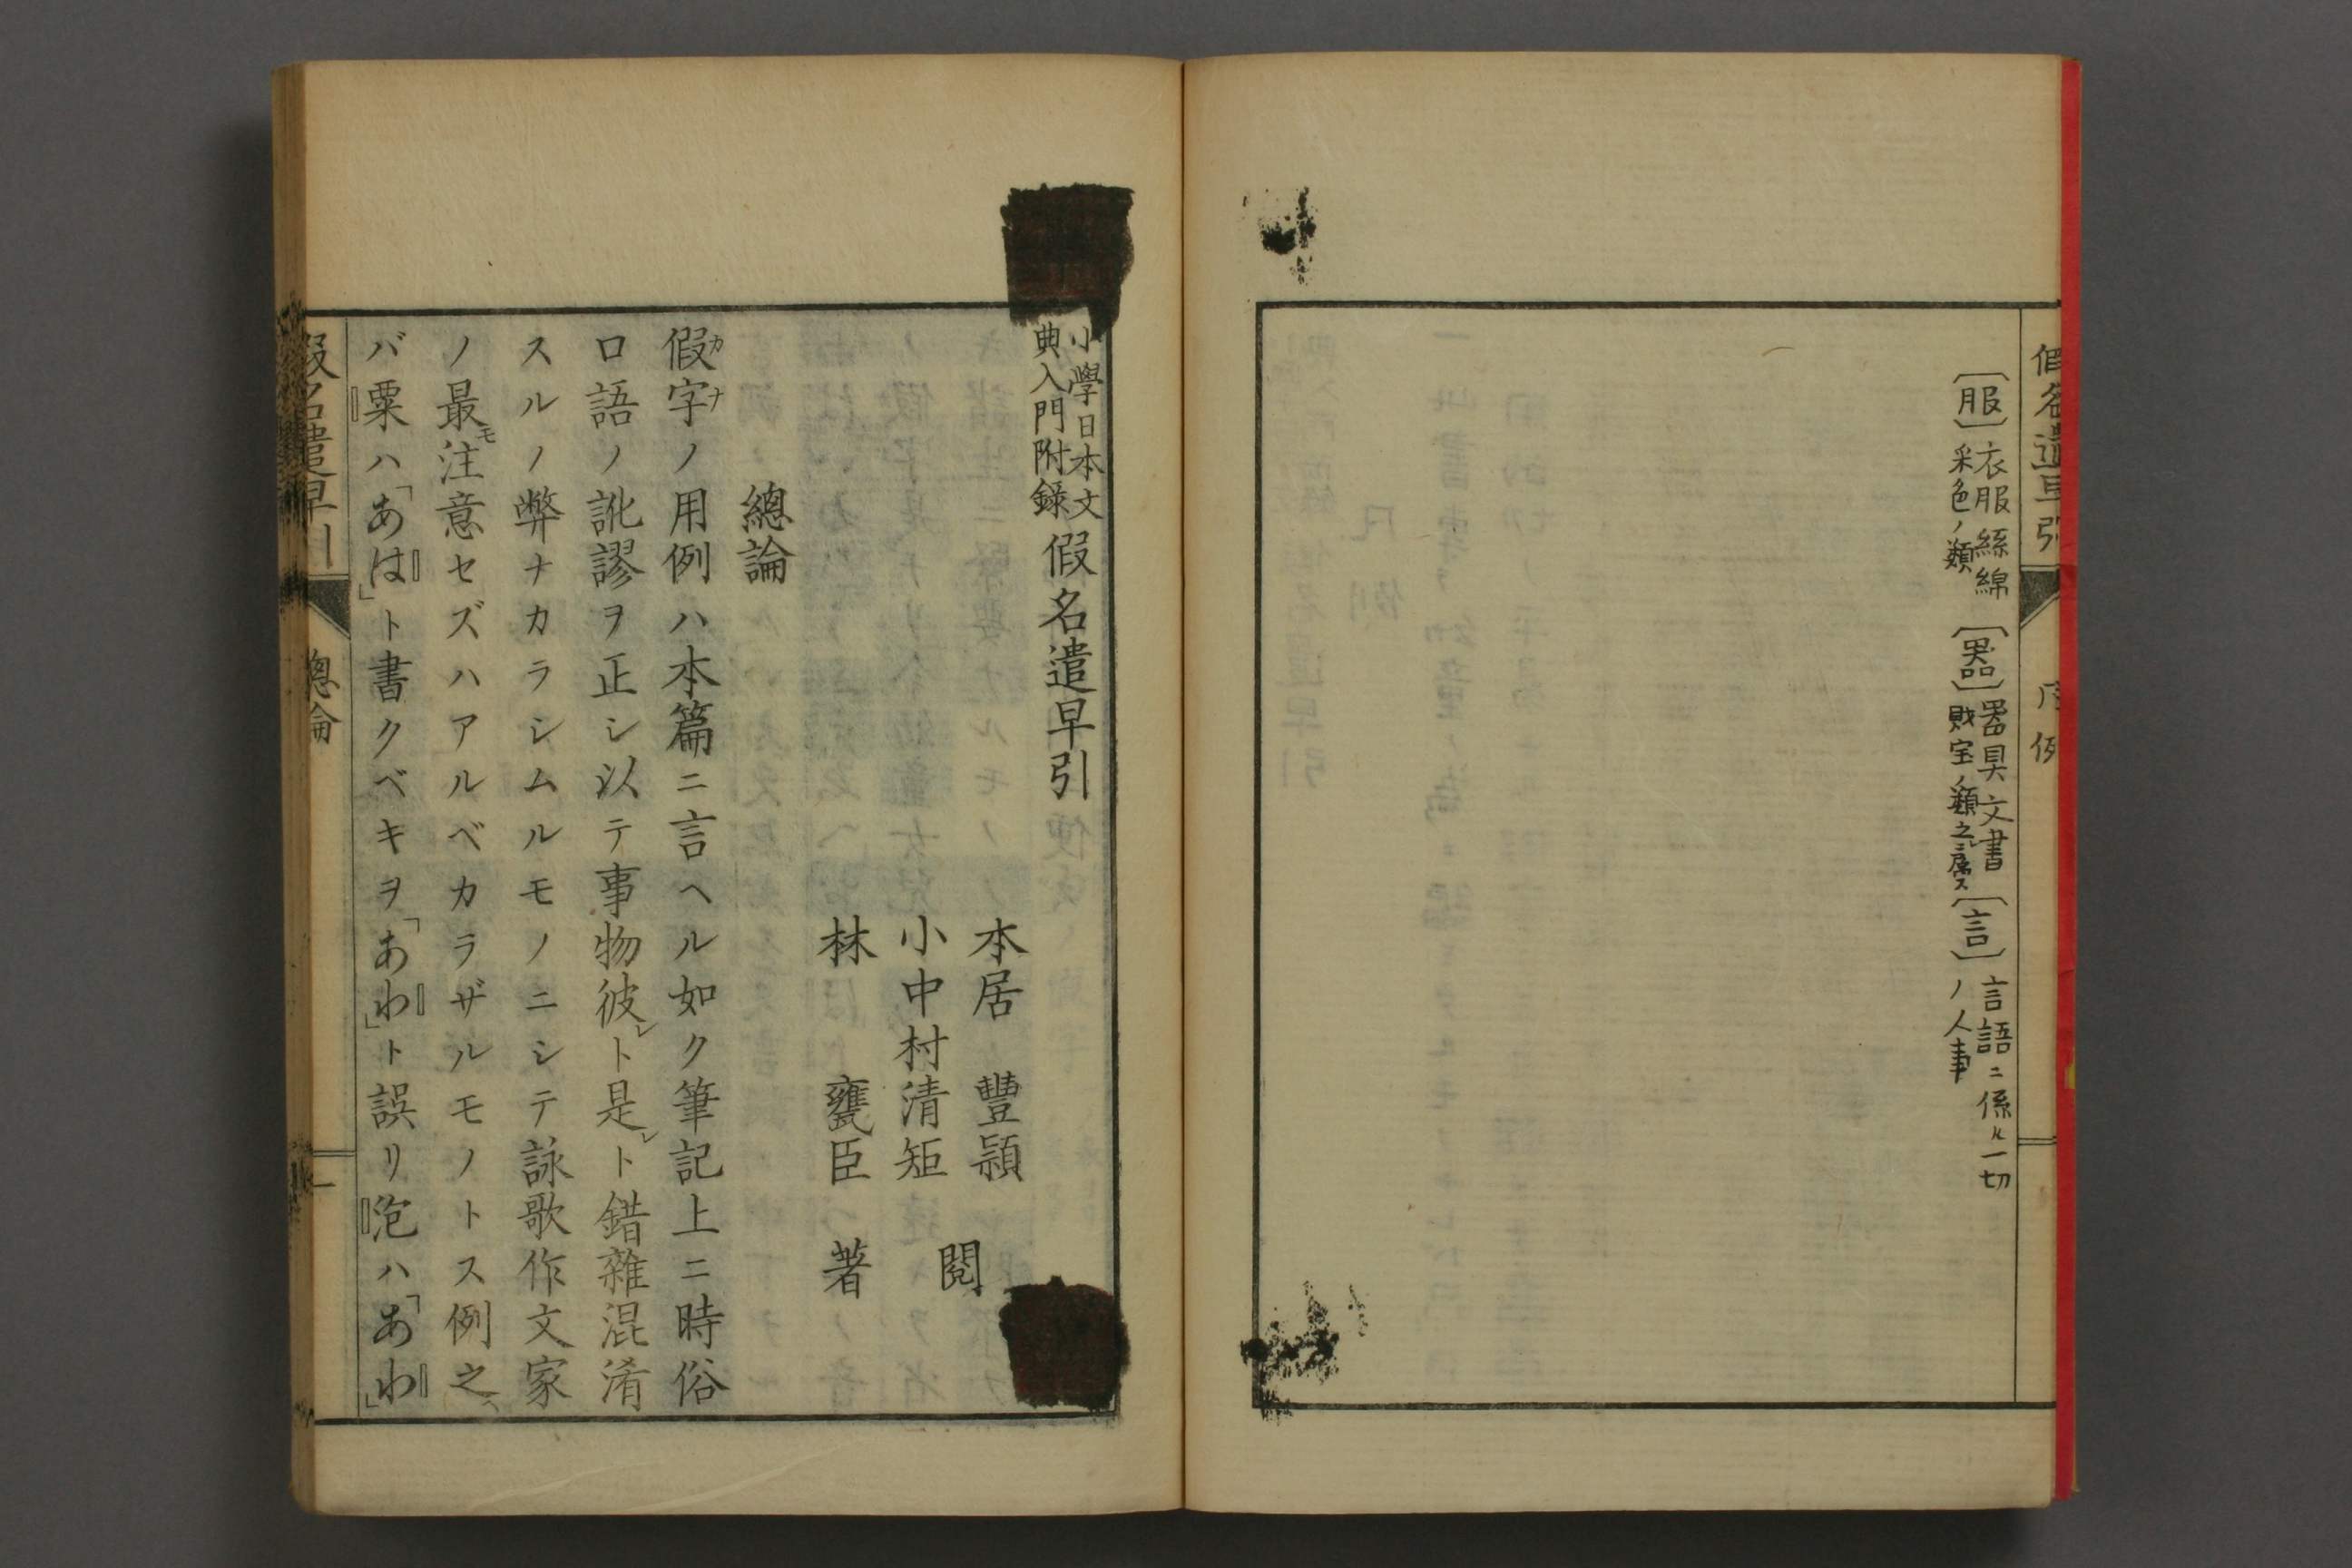 假名遣早引
序例
〔服〕衣服絲綿采色ノ類〔器〕器具文書財宝ノ類之ニ属ス〔言〕言語ニ係ル一切ノ人事
小學日本文典入門附錄 假名遣早引
本居豐頴
小中村清矩 閲
林甕臣 著
總論
假字ノ用例ハ本篇ニ言ヘル如ク筆記上ニ時俗
カナ
口語ノ訛謬ヲ正シ以テ事物彼レト是レト錯雜混淆
スルノ弊ナカラシムルモノニシテ詠歌作文家
ノ最モ注意セズハアルベカラザルモノトス例之ヘ
バ粟ハ「あは」ト書クベキヲ「あわ」ト誤リ泡ハ「あわ」
假名遣早引
總論
一